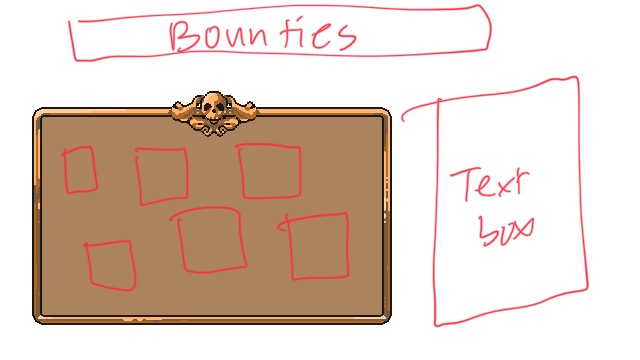 Bounties
Text
box